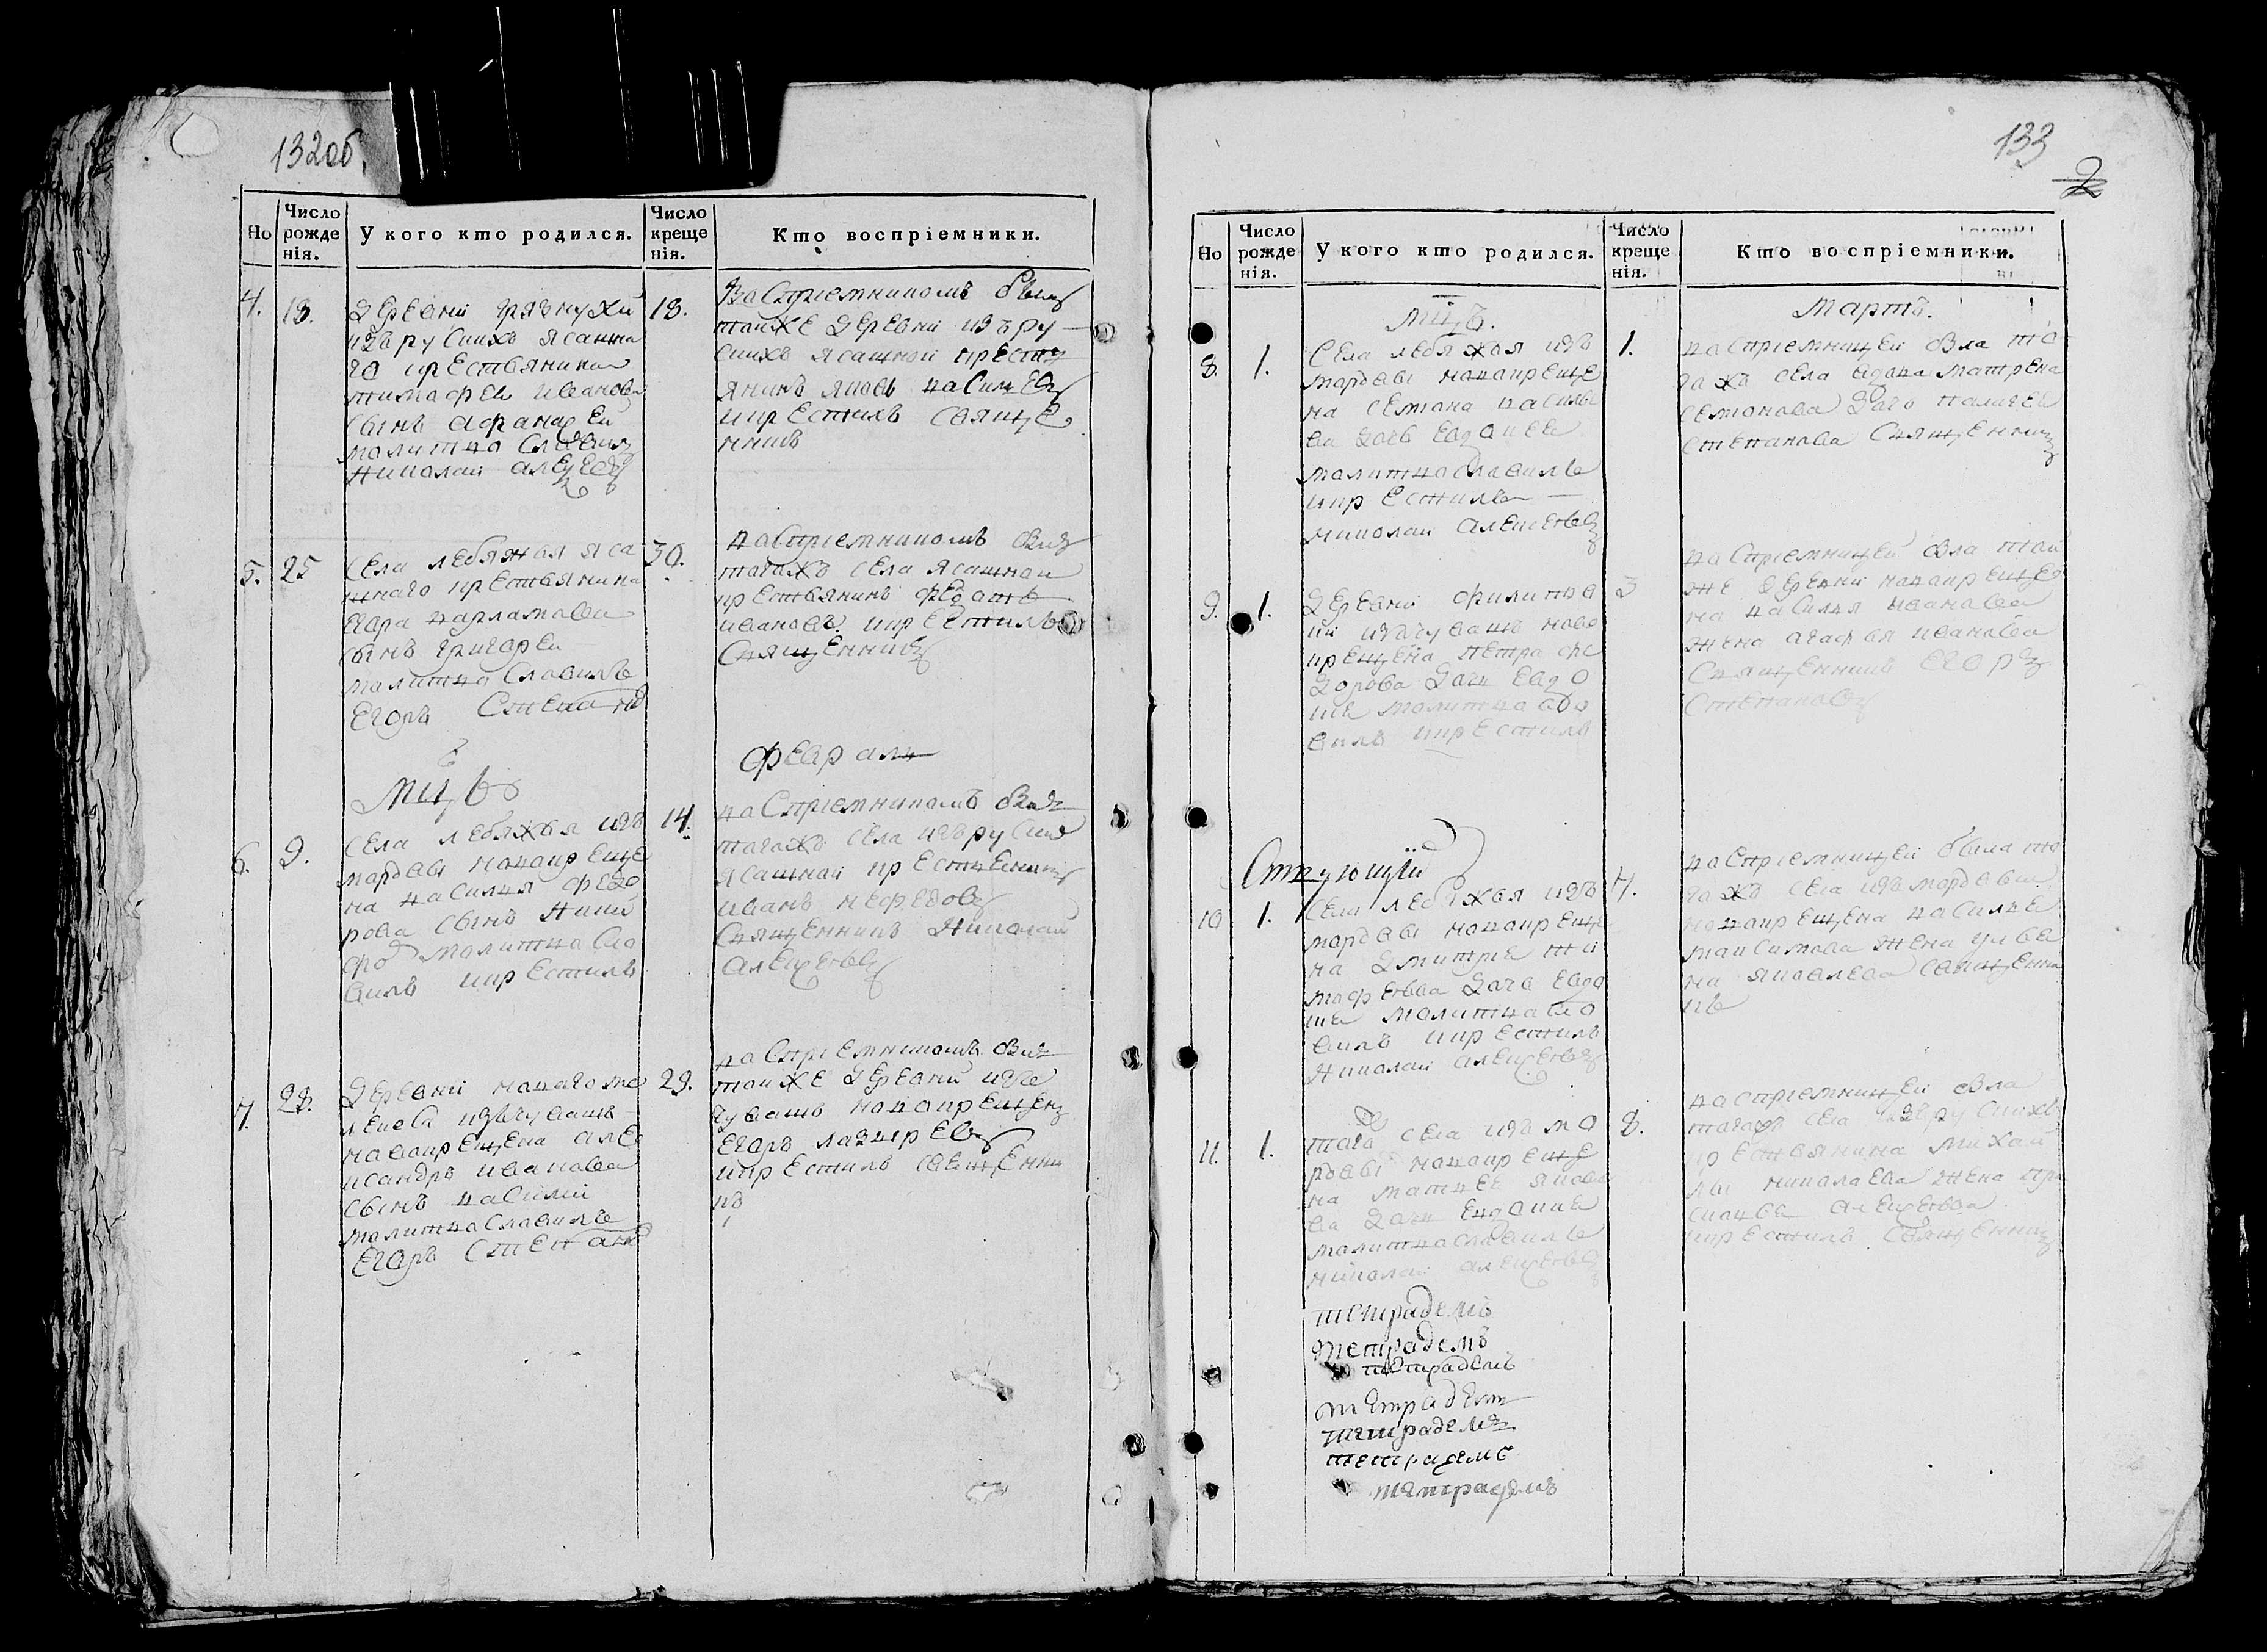 132об.
Но
Число рожде нія.
У кого кто родился.
Число креще нія.
Кто воспріемники.
4.
18.
деревни грязнухи
изъ русскихъ ясашна
го крестьянина
тимофеи иванова
сынъ афанасеи
молитво славилъ
николаи алеѯеевъ
18.
воспріемникомъ былъ
тойже деревни изъ ру
скихъ ясашной кресть
янинъ яковъ василевъ
икрестилъ свяще
никъ
5.
25
села лебяжья яса
шнаго крестьянина
егора варламова
сынъ григореи
молитво славилъ
егоръ степано
30.
воспріемникомъ былъ
тогожъ села ясашнои
крестьянинъ федотъ
ивановъ. икрестилъ
священникъ
мцъ
февраль
6.
9.
села лебяжья изъ
мордвы новокреще
на василья федо
рова сынъ ники
фо молитво сла
вилъ икрестилъ
14.
воспріемникомъ былъ
тогожъ села изъ руски
ясашной крестьянинъ
иванъ нефедовъ
священникъ николаи
алеѯеевъ
7.
28.
деревни новаго
изъ чувашъ
новокрещена алеѯандръ иванова
сынъ василии
молитво славилъ
егоръ степано
29.
воспріемникомъ былъ
тойже деревни изъ
чувашъ новокрещенъ
егоръ лазаревъ
икрестилъ священни
къ
133
2
Но
Число рожде нія.
У кого кто родился.
Число креще нія.
Кто воспріемники.
мцъ.
мартъ.
8.
1.
села лебяжья изъ
мордвы новокреще
на семена василь
ва дочь евдокее
молитво славилъ
икрестилъ
николаи алеѯеевъ
1.
воспріемницеи была то
гожъ села вдова матрена
семенова
степанова священникъ
9.
1.
деревни филипо
ки изъ чувашъ ново
крещена петра фе
дорова дочь евдо
ке молитво сла
вилъ икрестилъ
3
воспріемницеи была той
же деревни новокреще
на василья иванова
жена агафья иванова
священникъ егоръ
степановъ
10
1.
села лебяжья изъ
мордвы новокреще
на дмитрие ти
мофеева дочь евдо
ке молитво сла
вилъ икрестилъ
николаи алеѯеевъ
4.
воспріемницеи была то
гожъ села изъ мордвы
новокрещена василе
маѯимова жена улья
на яковлева священни
къ
11.
1.
того села изъ мо
рдвы новокреще
на матвее яковле
ва дочь евдокие
молитво славилъ
николаи алеѯеевъ
8.
воспріемницеи была
тогожъ села изъ рускихъ
крестьянина михаи
лы николаева жена пра
сковье алеѯеева
икрестилъ священникъ
тетрадемъ
тетрадемъ
тетрадемъ
тетрадем
тетрадемъ
тетрадемъ
тетрадемъ